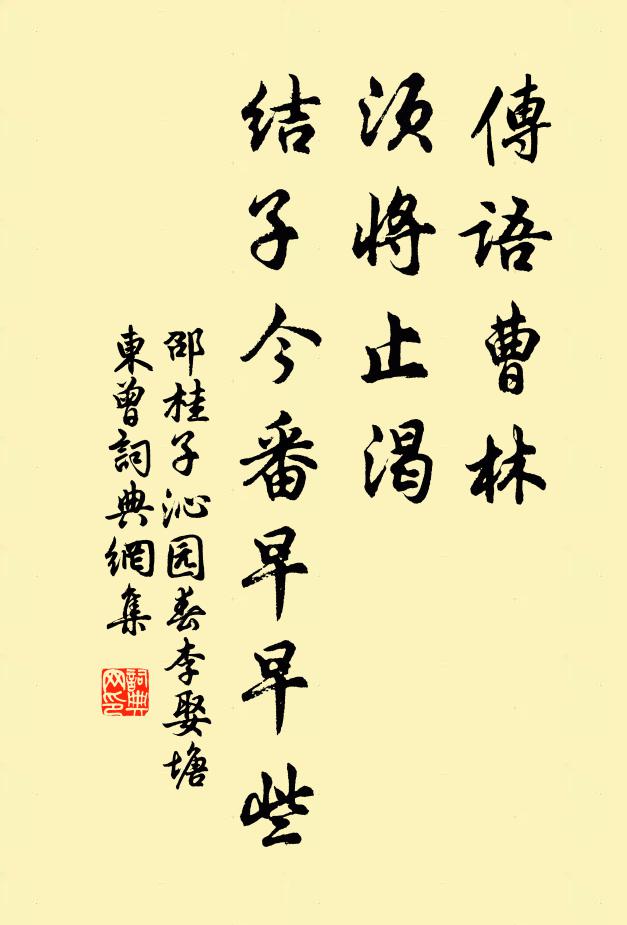 傳語曹林
須將止渴
结子今番早早些
邵桂子沁园春李娶塘
東曾詞典網集
詞典
网印